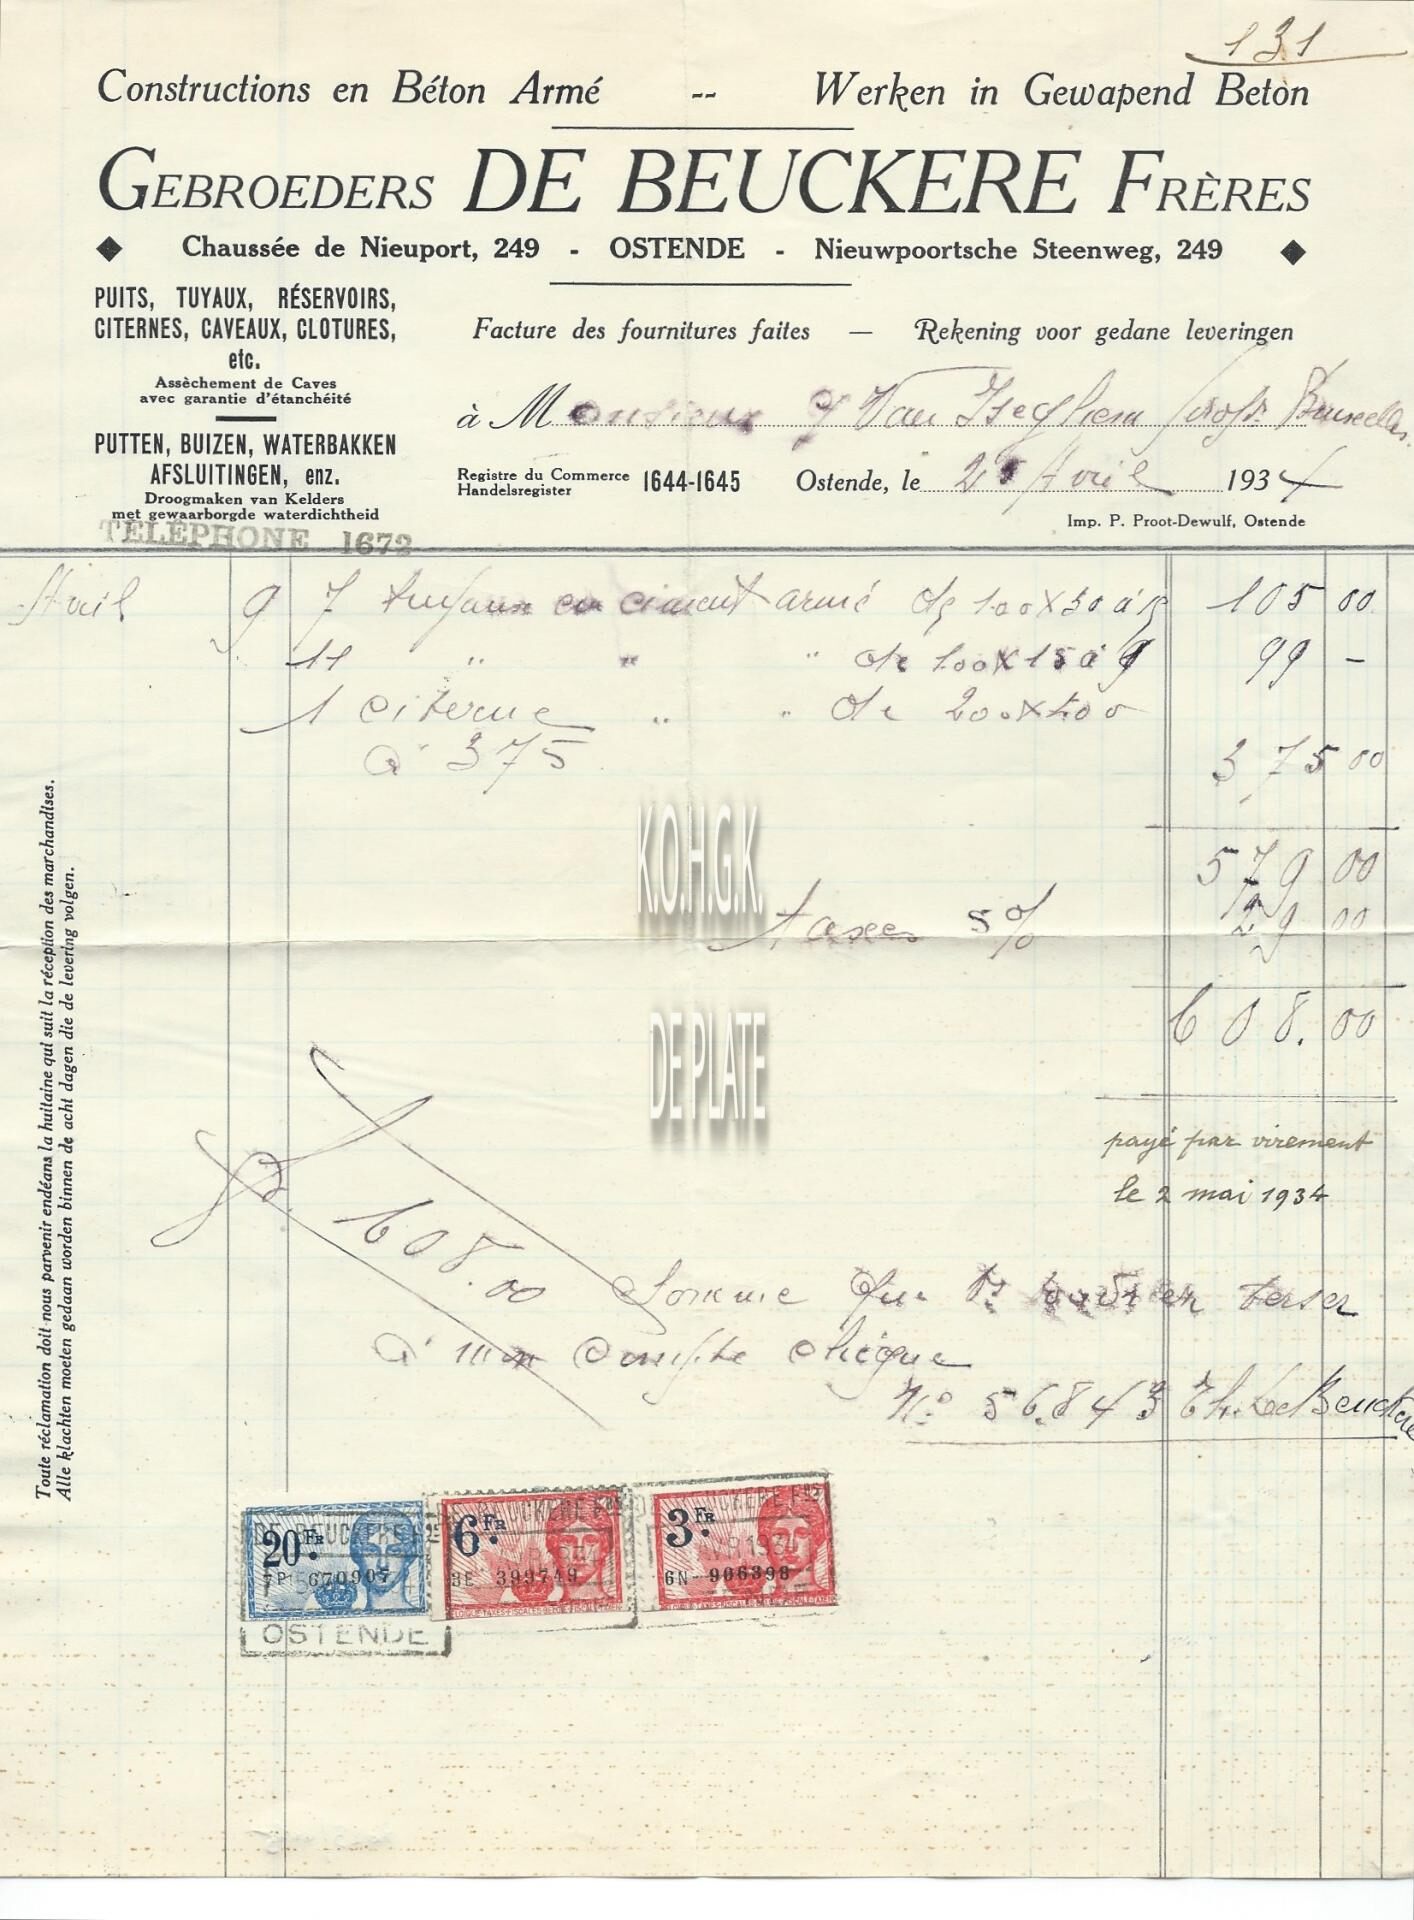 131
Constructions en Béton Armé -- Werken in Gewapend Beton
GEBROEDERS DE BEUCKERE FRÈRES
Chaussée de Nieuport, 249 - OSTENDE - Nieuwpoortsche Steenweg, 249
PUITS, TUYAUX, RÉSERVOIRS,
CITERNES, CAVEAUX, CLOTURES,
etc.
Assèchement de Caves
avec garantie d'étanchéité
PUTTEN, BUIZEN, WATERBAKKEN
AFSLUITINGEN, enz.
Droogmaken van Kelders
met gewaarborgde waterdichtheid
TÉLÉPHONE 1672
Facture des fournitures faites — Rekening voor gedane leveringen
à Monsieur Van Iseghem Bruxelles.
Registre du Commerce
Handelsregister
1644-1645
Ostende, le Avril 1934
Imp. P. Proot-Dewulf, Ostende
Avril 9 7 tuyaux en ciment armé de 100x30 à 15 105 00
11 " " " de 100x15 à 9 99 -
1 citerne " " de 200x
à 375 375 00
579 00
taxes 5% 29 00
608.00
payé par virement
le 2 mai 1934
608.00 Somme que verser
à mon compte chèque
No. 56.843 Th. De Beuckere
Toute réclamation doit nous parvenir endéans la huitaine qui suit la réception des marchandises.
Alle klachten moeten gedaan worden binnen de acht dagen die de levering volgen.
K.O.H.G.K.
DE PLATE
20 FR
7P 670907
6 FR
3E 399749
3 FR
6N 906398
DE BEUCKERE FRES
OSTENDE